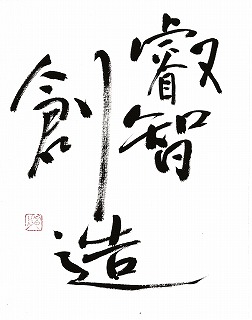 叡智
創造